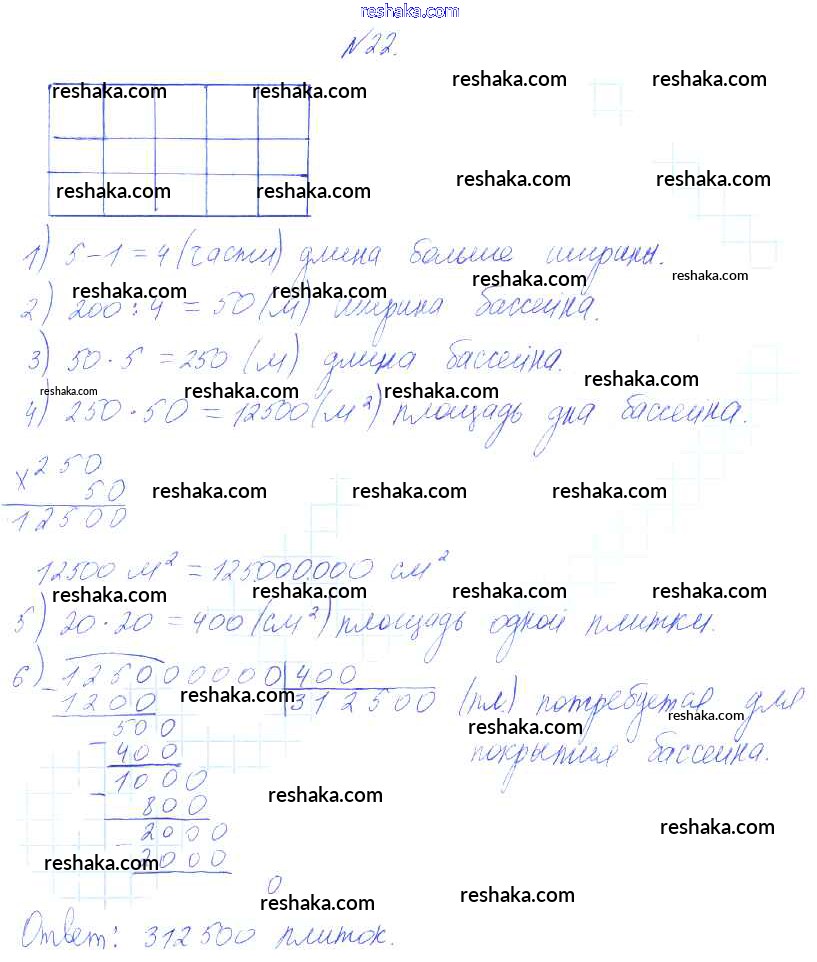 reshaka.com
№22.
reshaka.com reshaka.com reshaka.com reshaka.com
reshaka.com reshaka.com reshaka.com reshaka.com
1) 5-1=4 (части) длина больше ширины.
reshaka.com reshaka.com reshaka.com reshaka.com
2) 200:4=50 (м) ширина бассейна.
3) 50·5=250 (м) длина бассейна.
reshaka.com reshaka.com reshaka.com reshaka.com
4) 250·50=12500 (м²) площадь дна бассейна.
x 250
50
reshaka.com reshaka.com reshaka.com
12500
12500 м² = 125.000.000 см²
reshaka.com reshaka.com reshaka.com reshaka.com
5) 20·20=400 (см²) площадь одной плитки.
6) 1250000000 400
- 1200 312500 (пл.) потребуется для
reshaka.com reshaka.com reshaka.com
500
- 400 покрытия бассейна.
1000
- 800
reshaka.com reshaka.com
2000
- 2000
reshaka.com reshaka.com reshaka.com
0
Ответ: 312500 плиток.